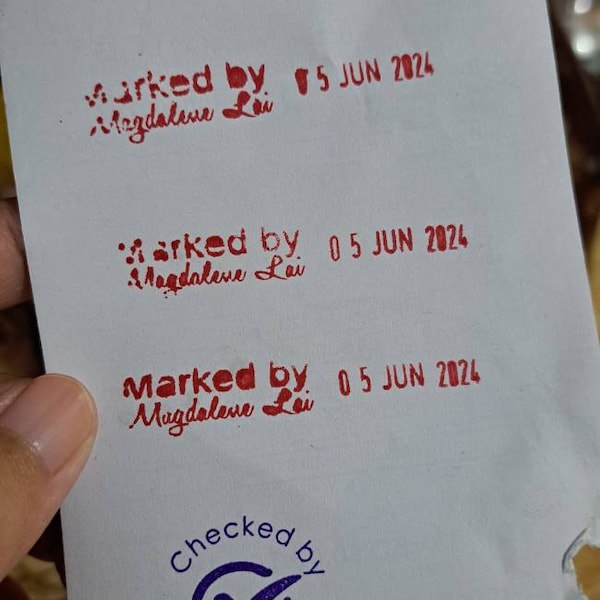 Marked by 05 JUN 2024
Magdalene Lai
Marked by 05 JUN 2024
Magdalene Lai
Marked by 05 JUN 2024
Magdalene Lai
Checked by